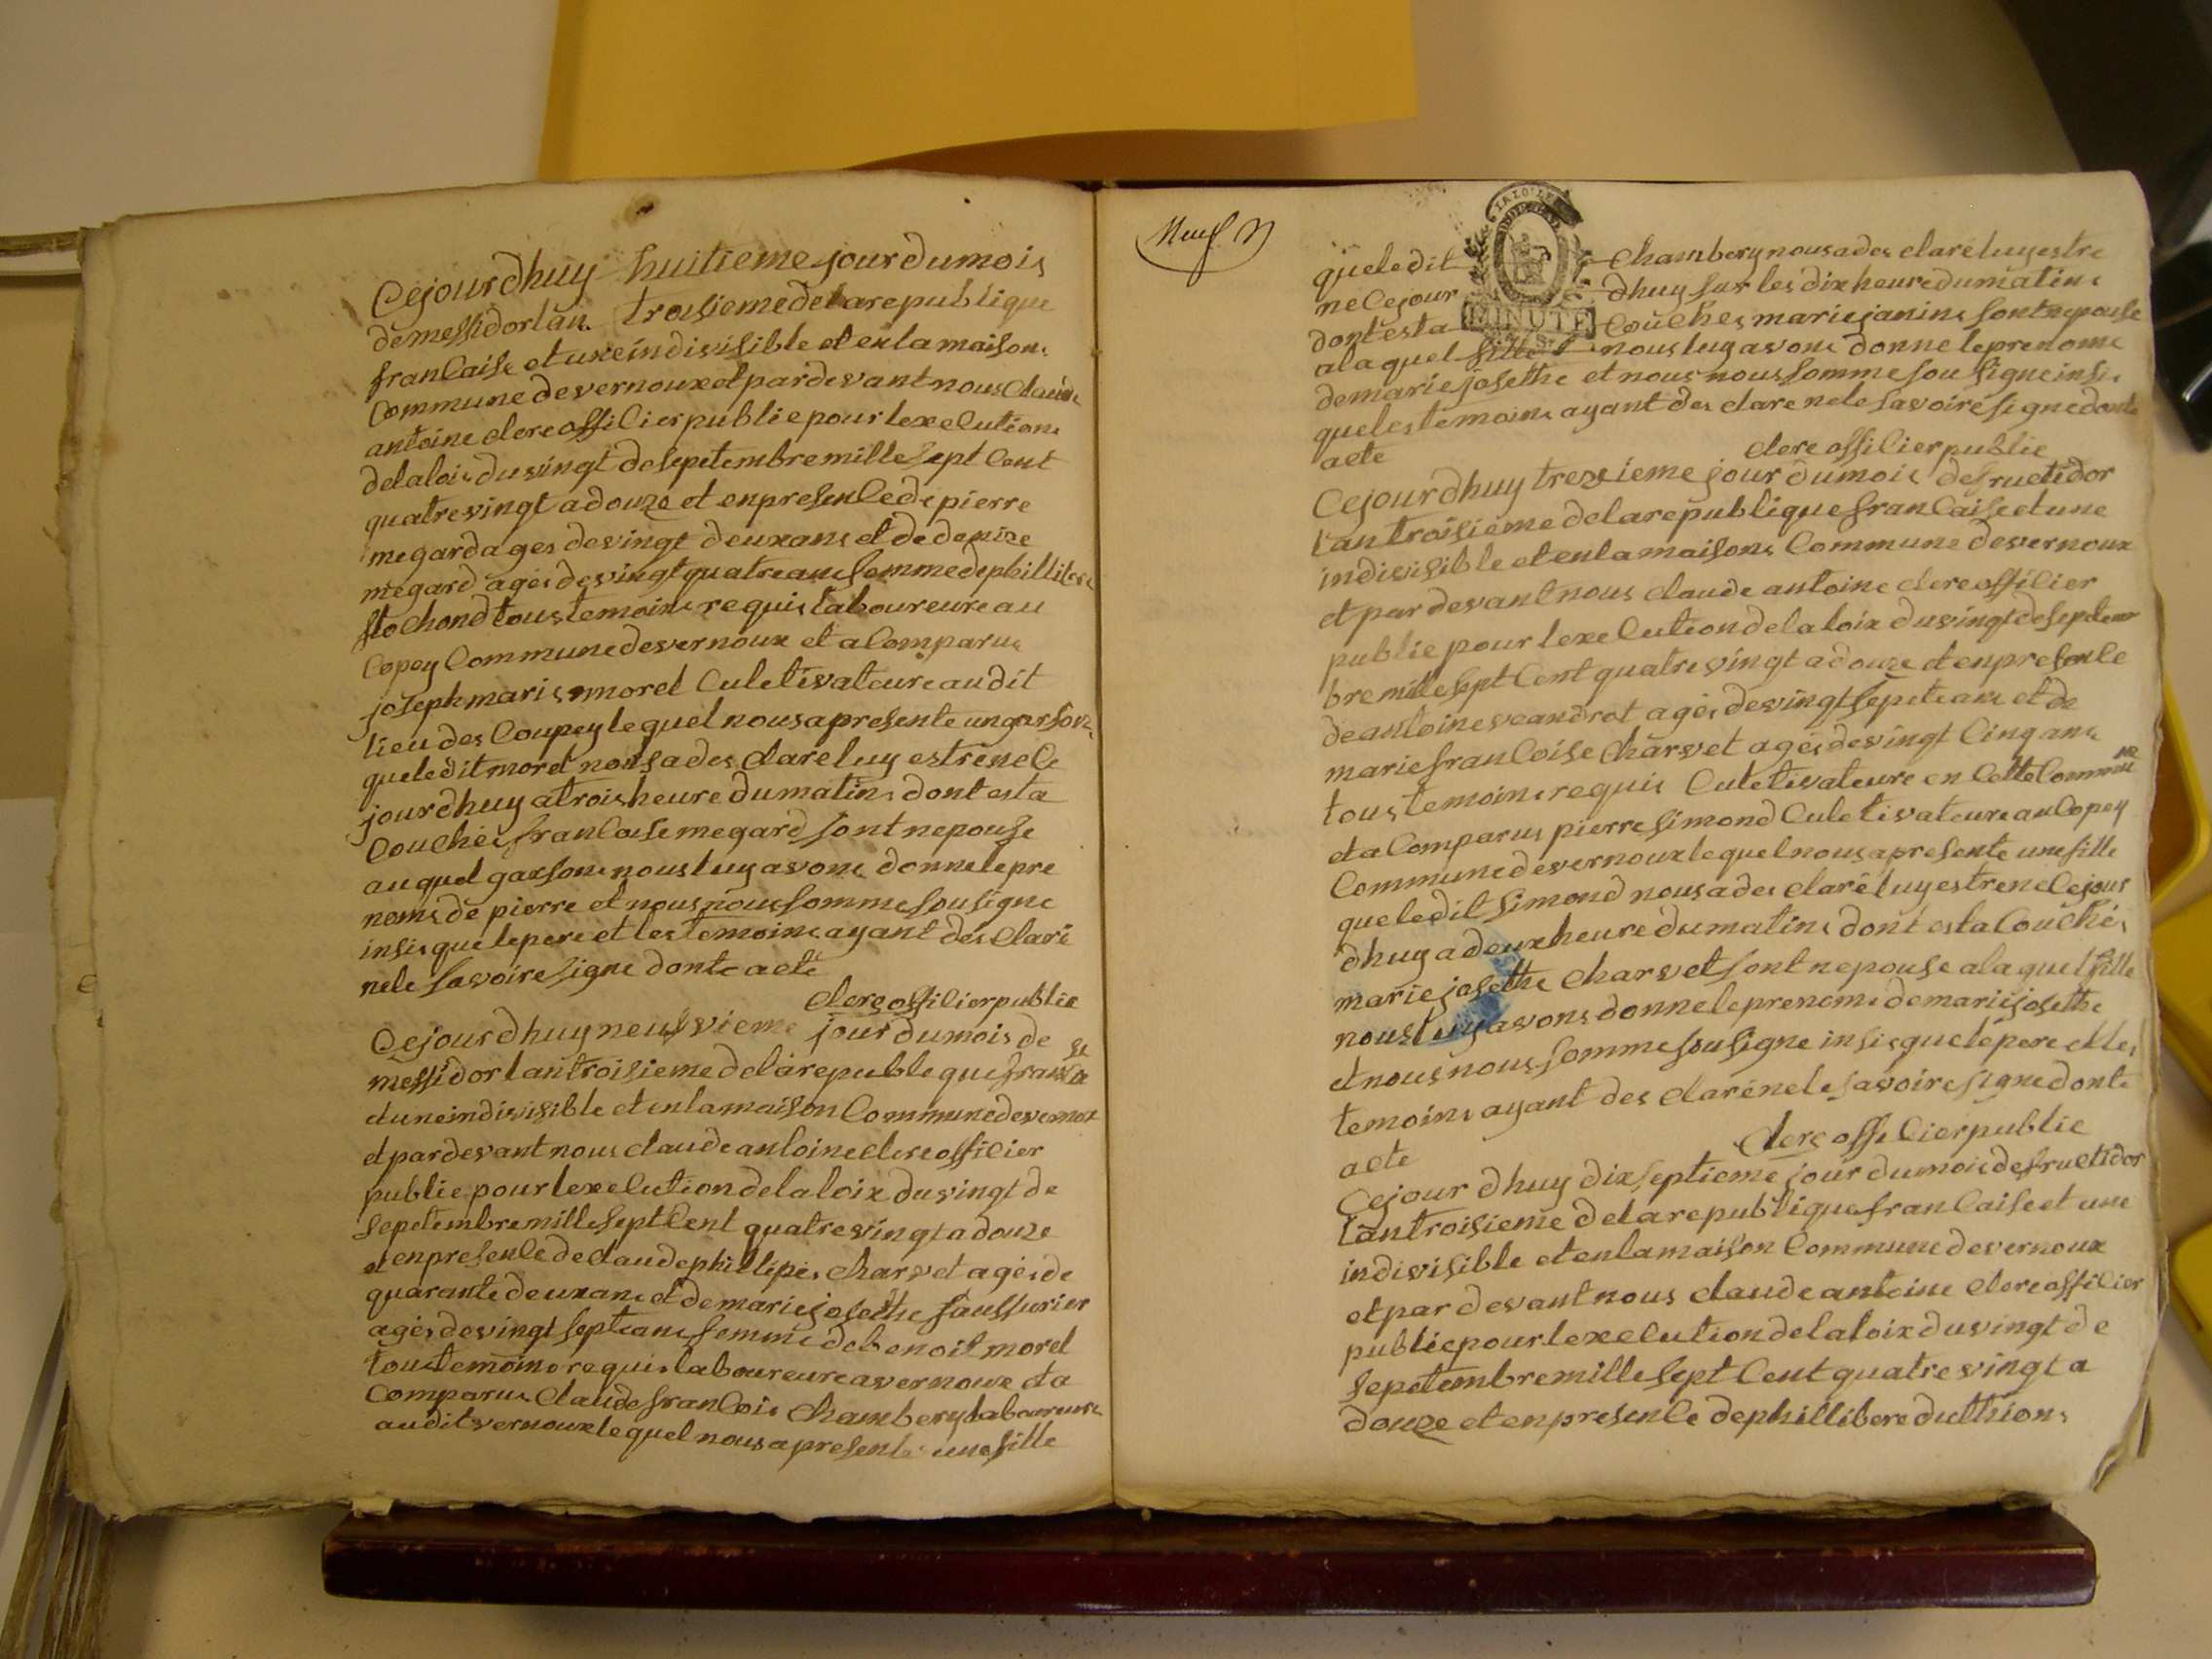 Cejourdhuy huitieme jour du mois
de messidor lan troisieme de la republique
francaise et une indivisible et en la maison
commune de vernoux et par devant nous claude
antoine clerc officier publie pour lexecution
de la lois du vingt de sepetembre mille sept cent
quatre vingt a douze et en presence de pierre
megard ages de vingt deux ans et de denize
megard ages de vingt quatre ans femme de phillibere
tous temoins requis laboureure au
Copey Commune de vernoux et a Comparus
joseph maris morel Culetivateure au dit
lieu des Coupey le quel nous a presente un garson
que le dit morel nous a des clare luy estre ne Ce
jourdhuy a trois heure du matin dont est a
Couchés francoise megard sont nepouse
au quel garsons nous luy avons donne le pre
noms de pierre et nous nous somme sousigne
insis que le pere et les temoins ayant des clare
ne le savoire signe donte acte
clerc officier publie
Cejourdhuy neufvieme jour du mois de
messidor lan troisieme de la republeque francaise
et une indivisible et en la maison Commune de vernox
et par devant nous claude antoine clerc officier
publie pour lexecution de la loix du vingt de
sepetembre mille sept Cent quatre vingt a douze
et en presence de claude phillipes charvet agés de
quarante deux ans et de marie josethe saussurier
agés de vingt sept ans femme de benoit morel
tous temoins requis laboureure a vernoux et a
Comparus claude francois chambery laboureure
au dit vernoux le quel nous a presente une fille
Neuf
MINUTE
que le dit chambery nous a des clare luy estre
ne Cejour dhuy sur les dix heure du matin
dont est a Couches marie janins sont nepouse
a la quel fille nous luy avons donne le prenome
de marie josethe et nous nous somme sousigne insis
que les temoins ayant des clare ne le savoire signe donte
acte
clerc officier publie
Cejourdhuy trezieme jour du mois de fructidor
lan troisieme de la republique francaise et une
indivisible et en la maisons Commune de vernoux
et par devant nous claude antoine clerc officier
publie pour lexecution de la loix du vingt de septem
bre mille sept Cent quatre vingt a douze et en presence
de antoine veandrot agés de vingt sepete ans et de
marie francoise charvet agés de vingt Cinq ans
tous temoins requis Culetivateure en Cette Commune
et a Comparus pierre simond Culetivateure au Copey
Commune de vernoux le quel nous a presente une fille
que le dit simond nous a des claré luy estre ne Cejour
dhuy a deux heure du matins dont est a Couchés
marie josethe charvet sont nepouse a la quel fille
nous luy avons donne le prenome de marie josethe
et nous nous somme sousigne insis que le pere et les
temoins ayant des claré ne le savoire signe donte
acte
clerc officier publie
Cejour dhuy dix septieme jour du mois de fructidor
lan troisieme de la republique francaise et une
indivisible et en la maison Commune de vernoux
et par devant nous claude antoine clerc officier
publie pour lexecution de la loix du vingt de
sepetembre mille sept Cent quatre vingt a
douze et en presence de phillibere duthion